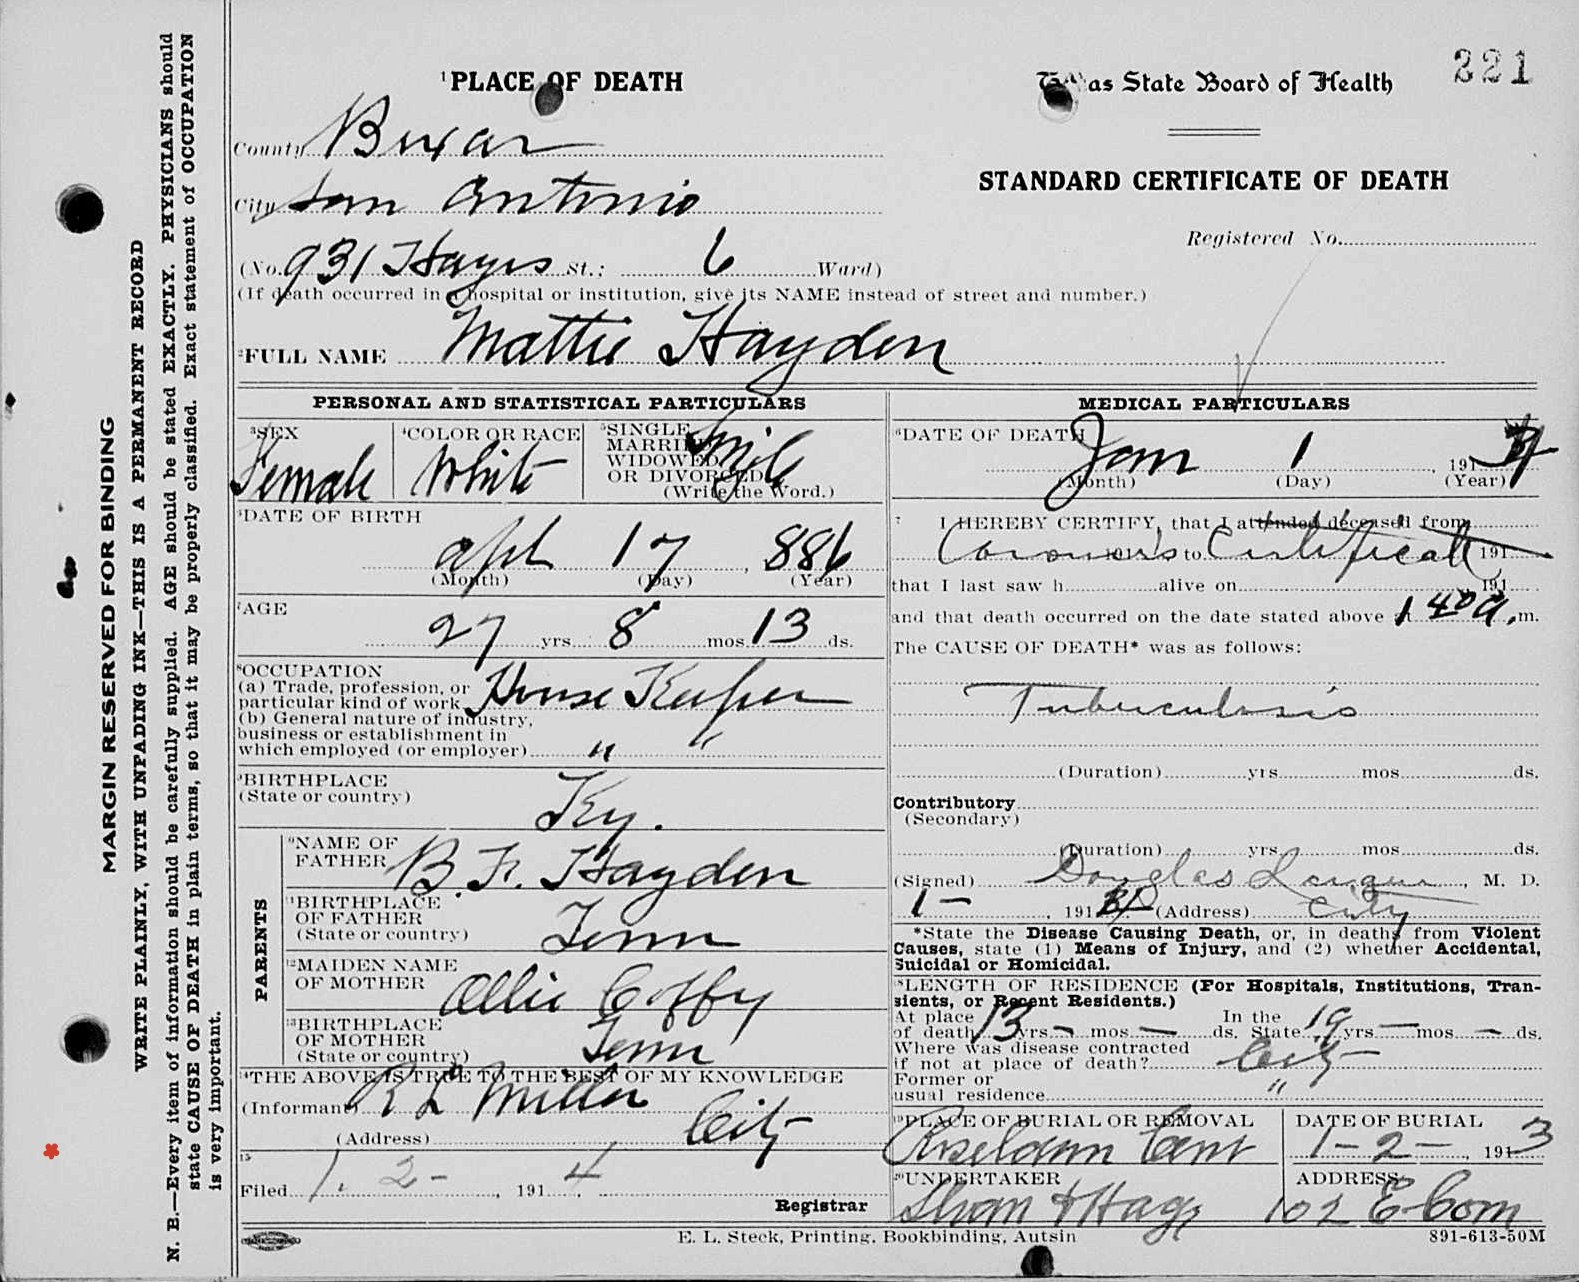 221
¹PLACE OF DEATH
Texas State Board of Health
County Bexar
STANDARD CERTIFICATE OF DEATH
City San Antonio
Registered No.
(No. 931 Hayes St.; 6 Ward)
(If death occurred in a hospital or institution, give its NAME instead of street and number.)
²FULL NAME Mattie Hayden
PERSONAL AND STATISTICAL PARTICULARS
³SEX
Female
⁴COLOR OR RACE
White
⁵SINGLE
MARRIED
WIDOWED
OR DIVORCED
(Write the Word.)
Single
DATE OF BIRTH
Apl 17, 886
(Month) (Day) (Year)
⁷AGE
27 yrs. 8 mos. 13 ds.
⁸OCCUPATION
(a) Trade, profession, or
particular kind of work House Keeper
(b) General nature of industry,
business or establishment in
which employed (or employer) " "
⁹BIRTHPLACE
(State or country)
Ky.
PARENTS
NAME OF
FATHER B. F. Hayden
¹¹BIRTHPLACE
OF FATHER
(State or country) Tenn
¹²MAIDEN NAME
OF MOTHER Ollie Coffy
¹³BIRTHPLACE
OF MOTHER
(State or country) Tenn
¹⁴THE ABOVE IS TRUE TO THE BEST OF MY KNOWLEDGE
(Informant) R L Miller
(Address) City
15
Filed 1. 2-, 1914
Registrar
MEDICAL PARTICULARS
DATE OF DEATH
Jan 1, 1914
(Month) (Day) (Year)
I HEREBY CERTIFY, that I attended deceased from
191 to 191
Coroner's Certificate
that I last saw h alive on 191
and that death occurred on the date stated above at 1 40 a.m.
The CAUSE OF DEATH* was as follows:
Tuberculosis
(Duration) yrs mos ds.
Contributory
(Secondary)
(Duration) yrs mos ds.
(Signed) Douglas, M. D.
1-, 1914 (Address) City
*State the Disease Causing Death, or, in deaths from Violent
Causes, state (1) Means of Injury, and (2) whether Accidental,
Suicidal or Homicidal.
¹⁸LENGTH OF RESIDENCE (For Hospitals, Institutions, Tran-
sients, or Recent Residents.)
At place In the
of death 13 yrs - mos. - ds. State 19 yrs - mos - ds.
Where was disease contracted
if not at place of death? City
Former or
usual residence "
¹⁹PLACE OF BURIAL OR REMOVAL
DATE OF BURIAL
1-2-, 1913
²⁰UNDERTAKER
ADDRESS
102 E Com
E. L. Steck, Printing, Bookbinding, Autsin
891-613-50M
MARGIN RESERVED FOR BINDING
WRITE PLAINLY, WITH UNFADING INK—THIS IS A PERMANENT RECORD
N. B.—Every item of information should be carefully supplied. AGE should be stated EXACTLY. PHYSICIANS should
state CAUSE OF DEATH in plain terms, so that it may be properly classified. Exact statement of OCCUPATION
is very important.